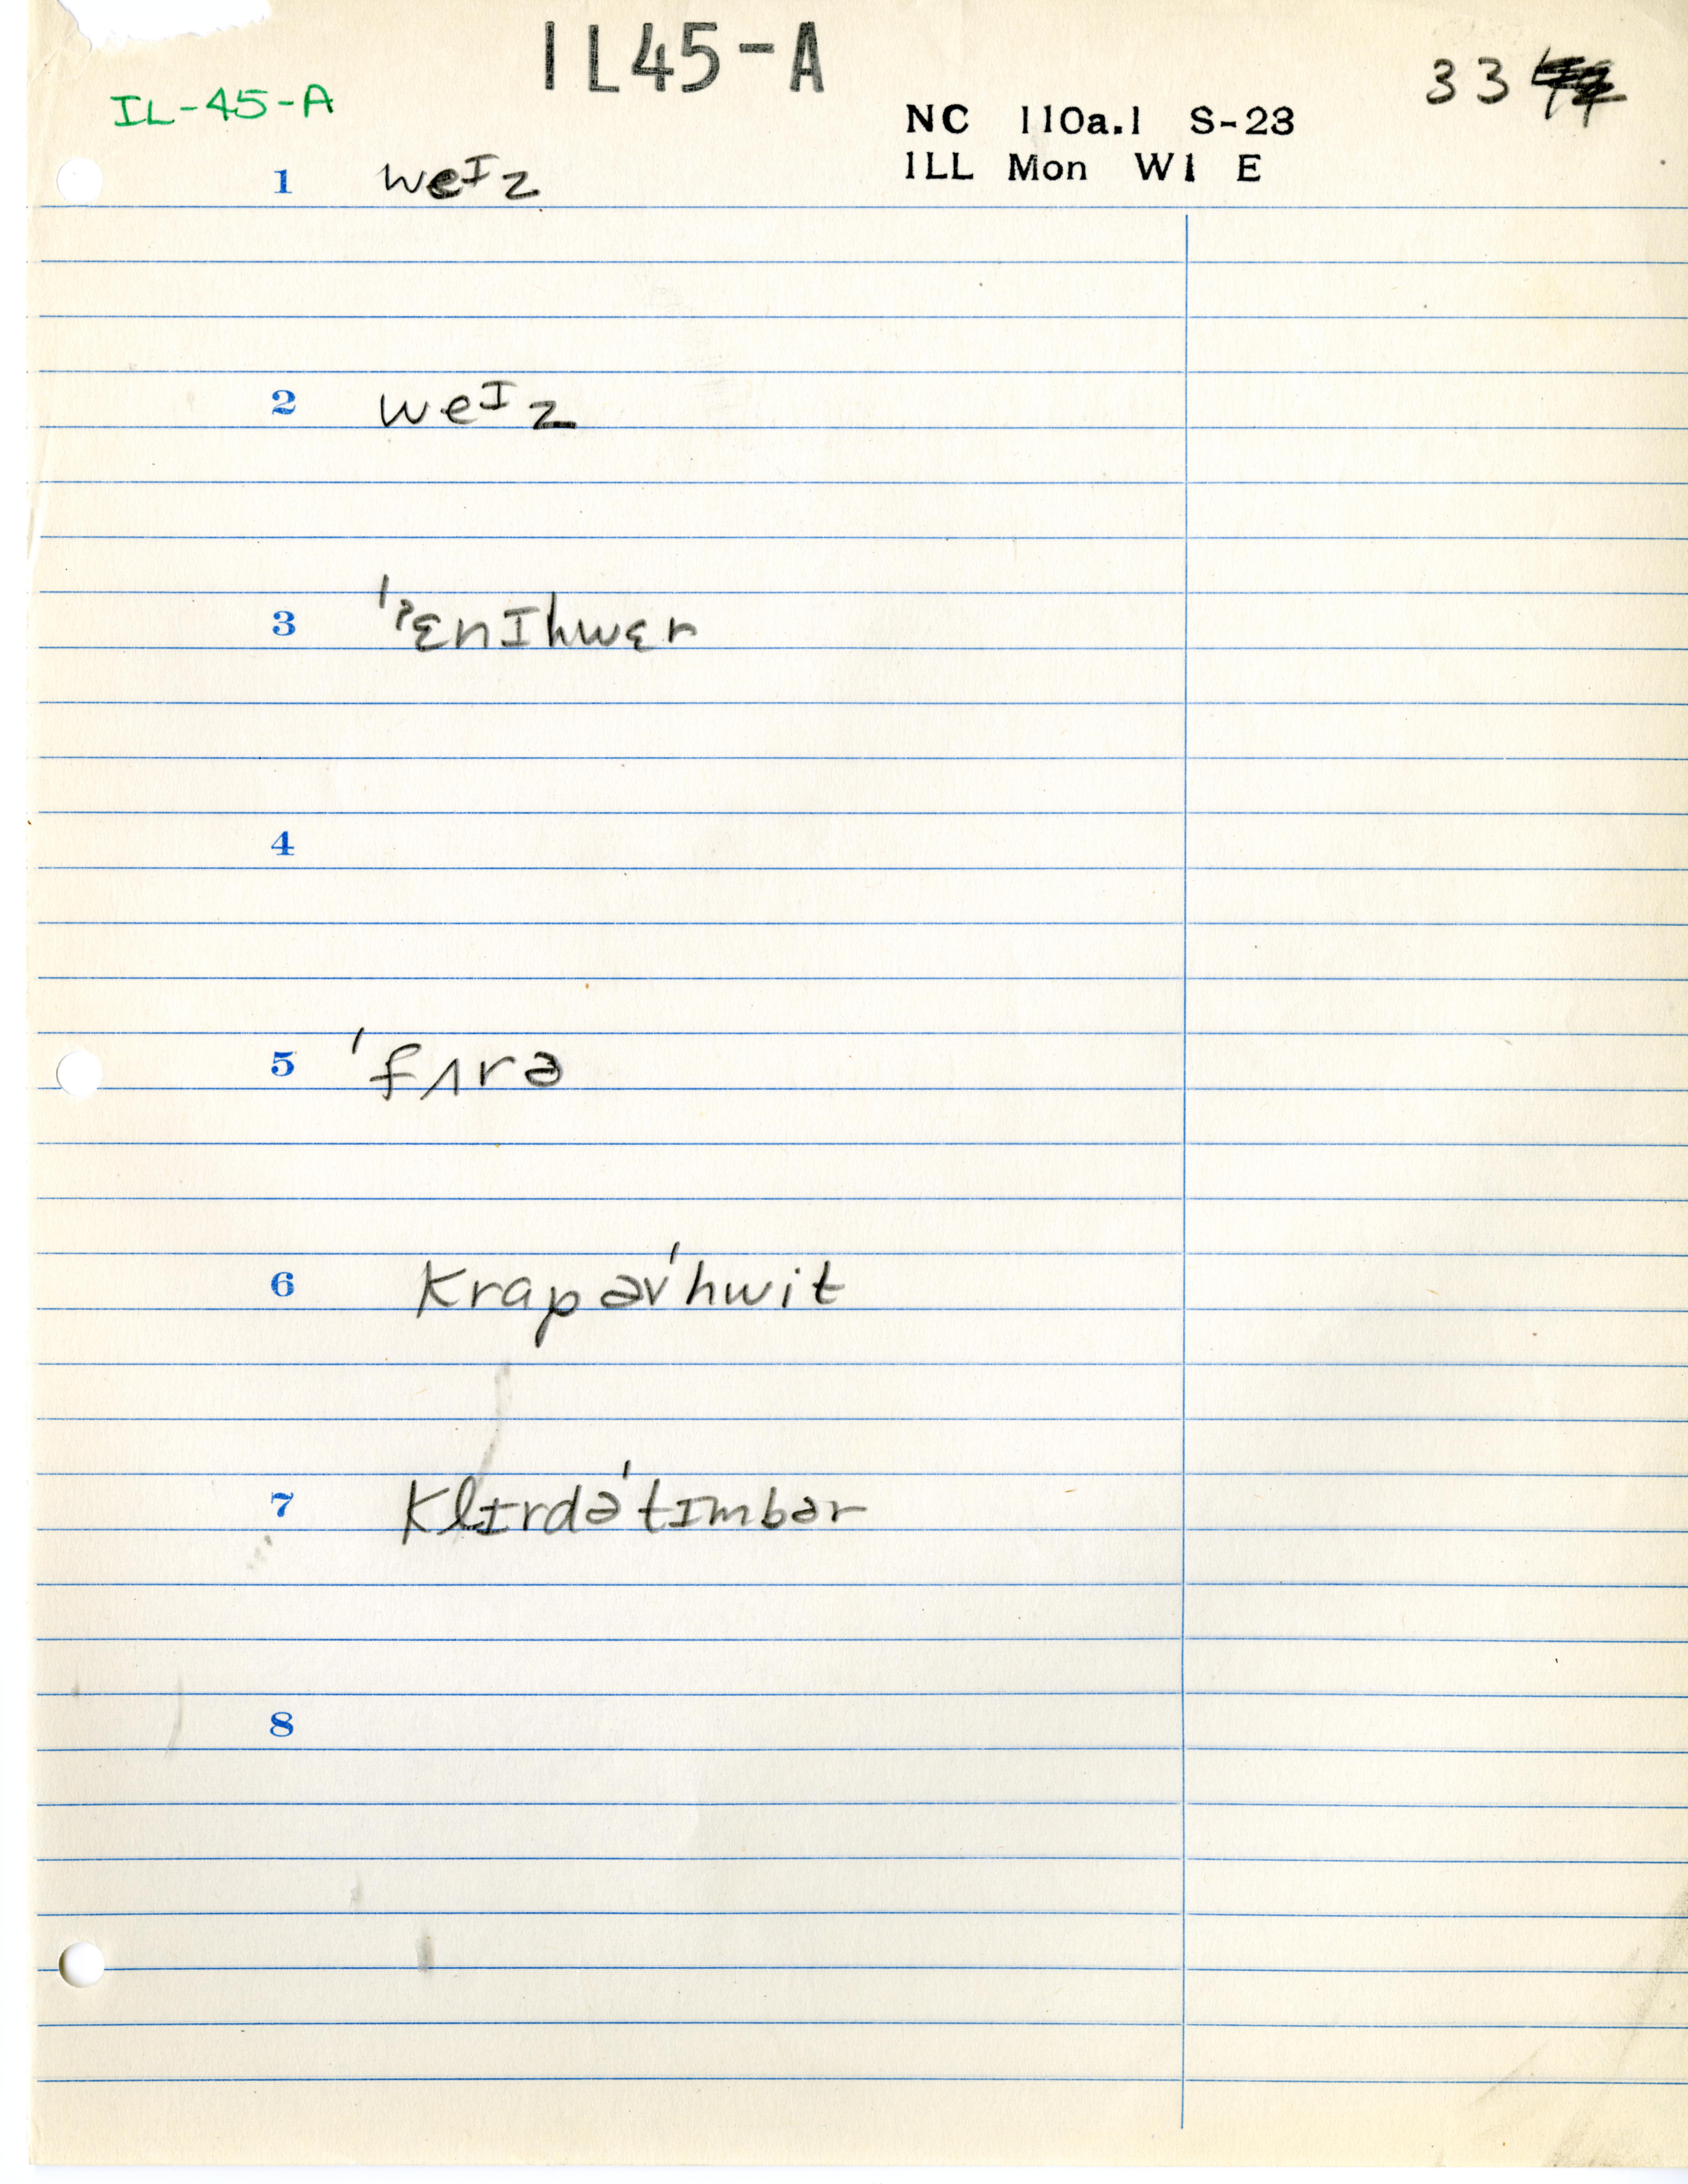 IL45-A
33
IL-45-A
NC 110a.1 S-23
ILL Mon W1 E
1 weᴵz
2 weᴵz
3 'ˀɛnɪhwɛr
4
5 'fʌrə
6 krapəv'hwit
7 klɪrdə'tɪmbər
8